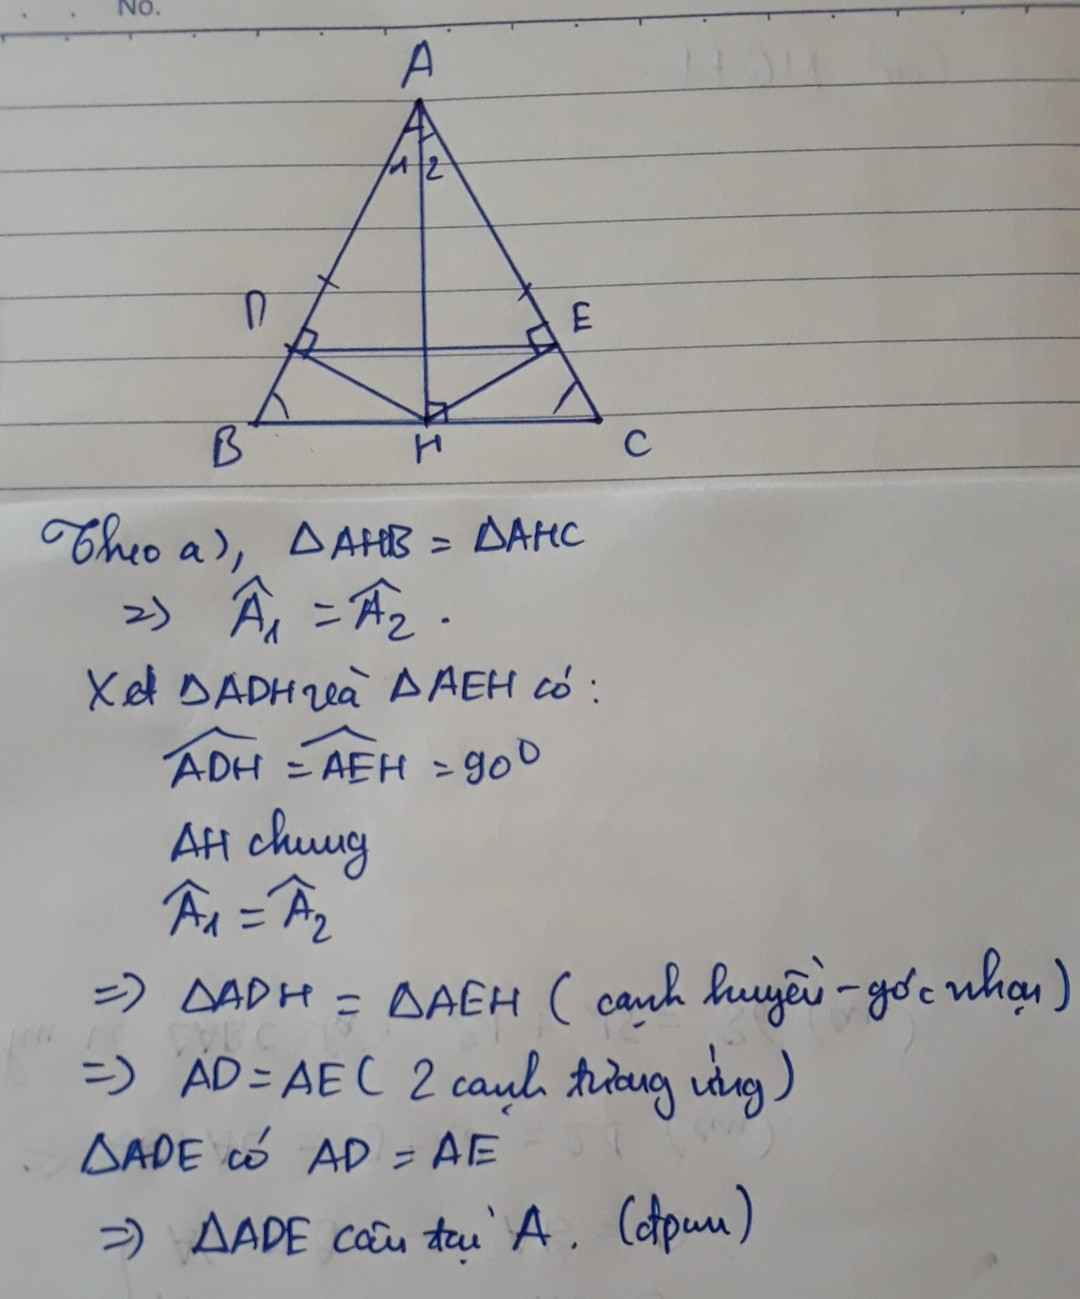 No.
A
1 2
D
E
B
H
C
Theo a), ΔAHB = ΔAHC
=> Â₁ = Â₂.
Xét ΔADH và ΔAEH có:
ADH = AEH = 90⁰
AH chung
Â₁ = Â₂
=> ΔADH = ΔAEH ( cạnh huyền - góc nhọn)
=> AD = AE ( 2 cạnh tương ứng)
ΔADE có AD = AE
=> ΔADE cân tại A. (đpcm)